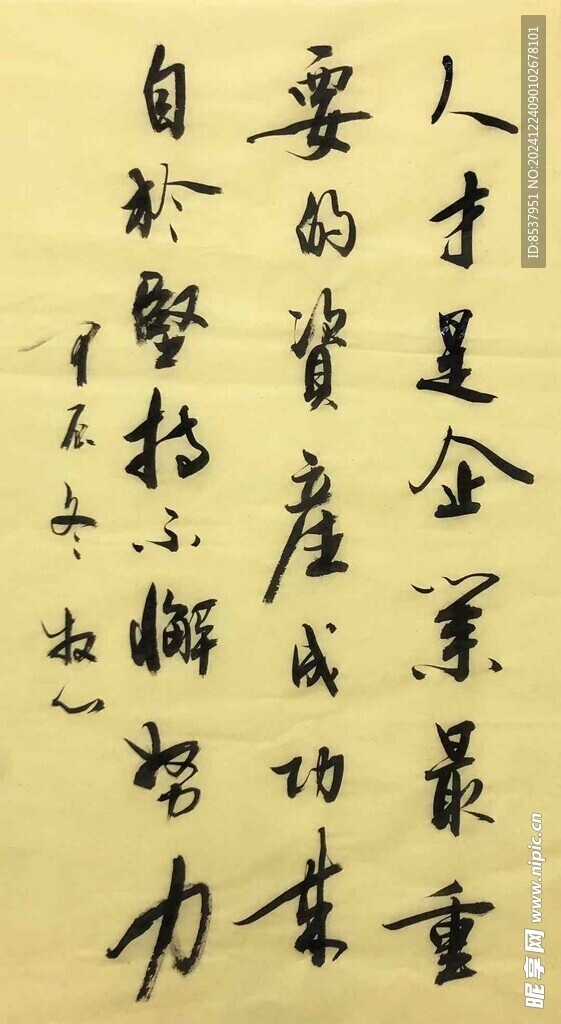 人才是企業最重
要的資產成功来
自於堅持不懈努力
甲辰冬牧心
ID:8537951 NO:20241224090102678101
昵享网 www.nipic.cn